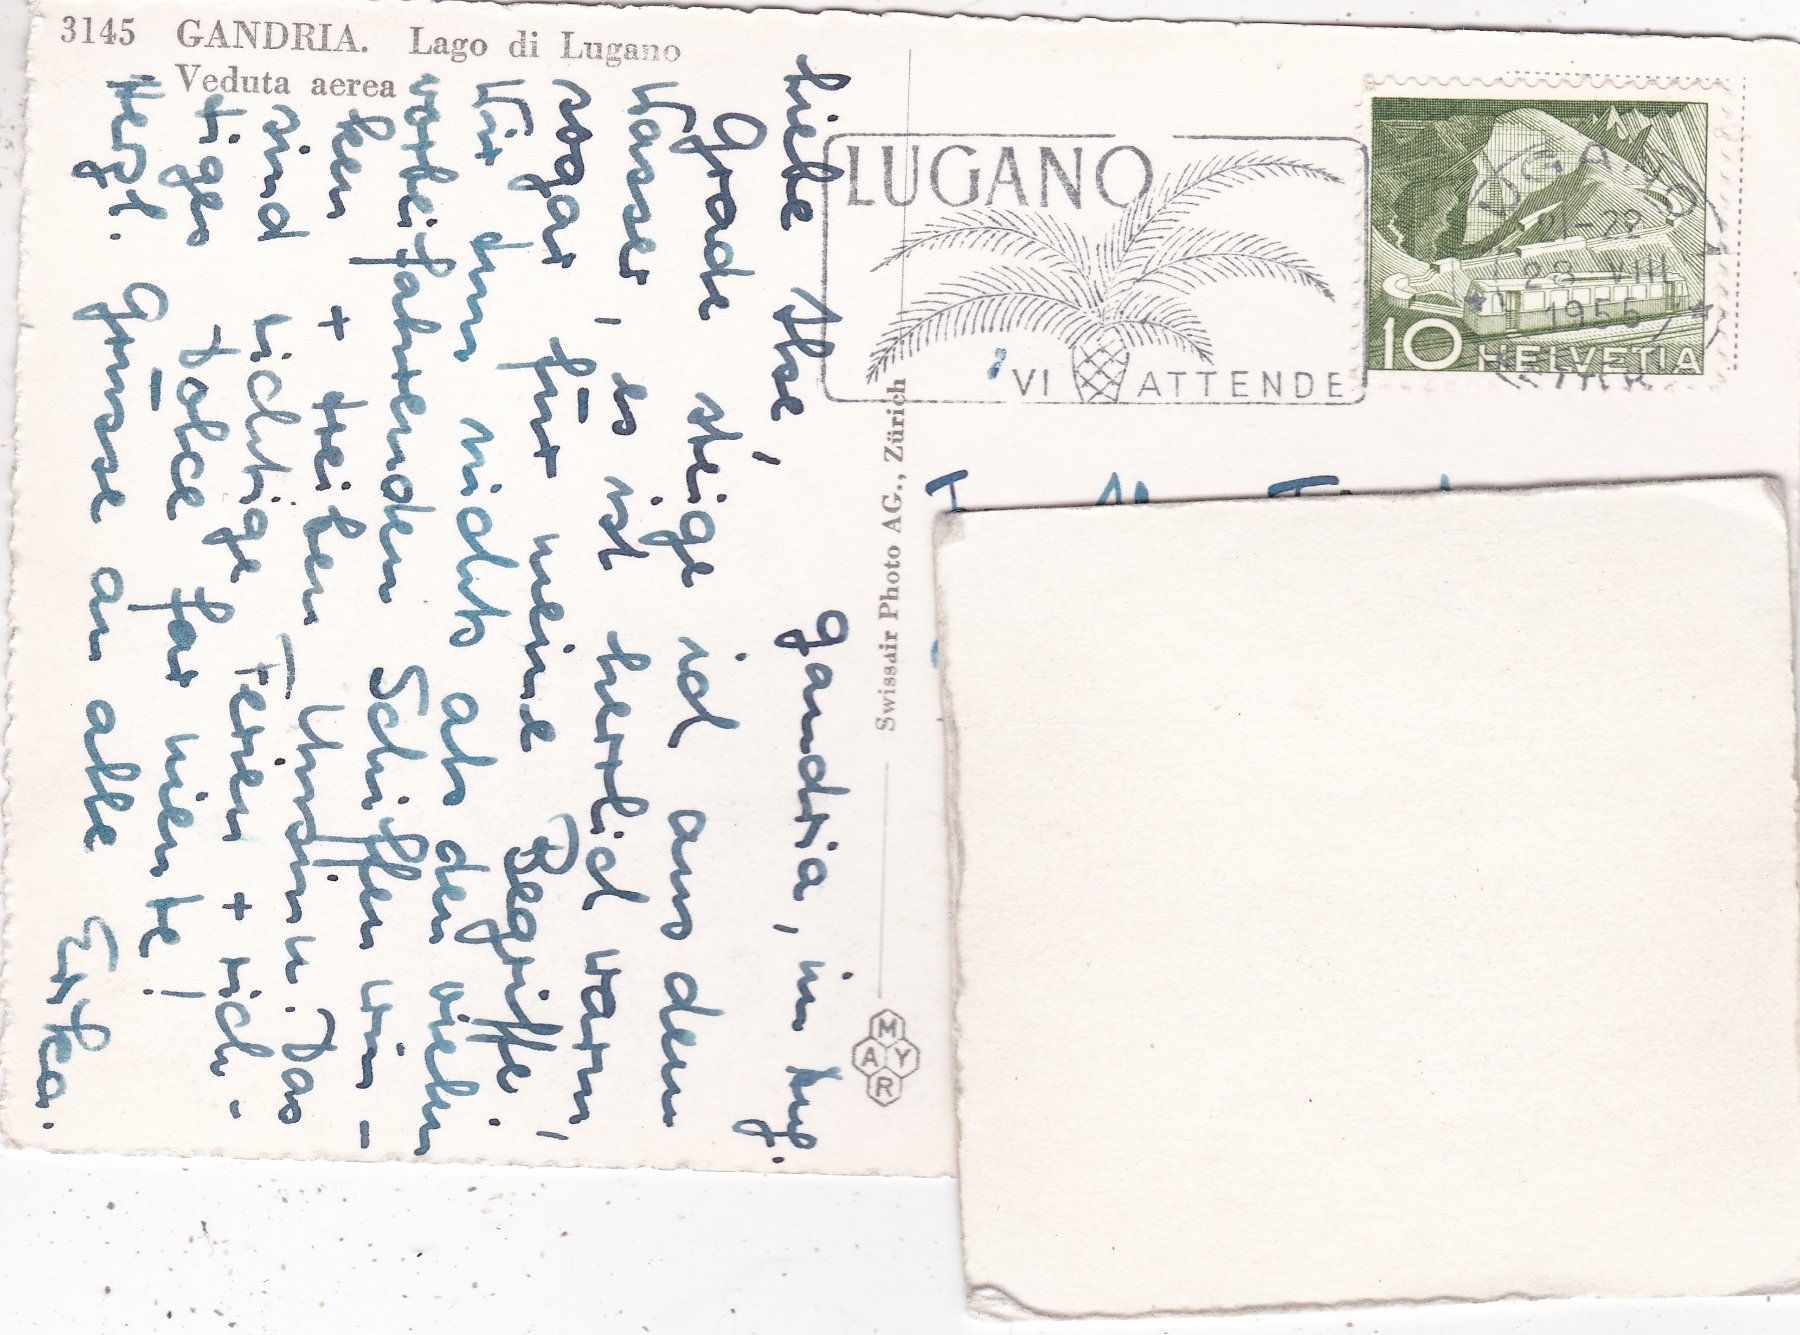 3145 GANDRIA. Lago di Lugano
Veduta aerea
Gandria, im Aug.
Liebe Ilse,
Grade steige ich aus dem
Wasser, es ist herrlich warm,
sogar für meine Begriffe.
Wir tun nichts als den vielen
vorbeifahrenden Schiffen win-
ken + treiben Unsinn. Das
sind richtige Ferien + rich-
tiges dolce far niente!
Herzl. Grüsse an alle Erika.
Swissair Photo AG., Zürich
MAYR
LUGANO
VI ATTENDE
LUGANO 1
21-22
VIII
1955
10 HELVETIA